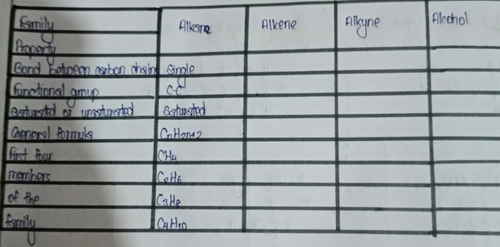 Family Alkane Alkene Alkyne Alcohol
Property
Bond between carbon chain Single
Functional group C-C
Saturated or unsaturated Saturated
General formula CnH2n+2
First four CH4
members C2H6
of the C3H8
family C4H10